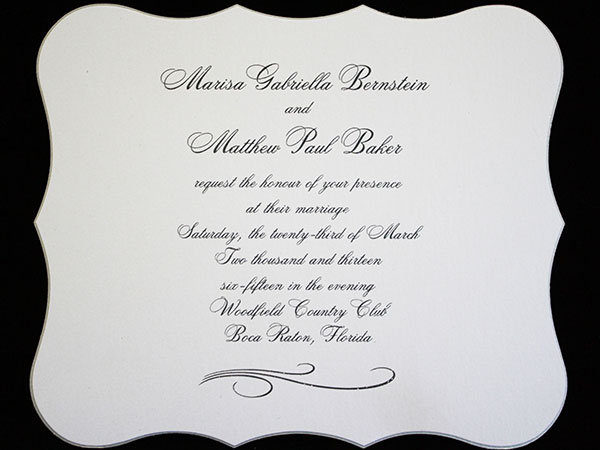 Marisa Gabriella Bernstein
and
Matthew Paul Baker
request the honour of your presence
at their marriage
Saturday, the twenty-third of March
Two thousand and thirteen
six-fifteen in the evening
Woodfield Country Club
Boca Raton, Florida